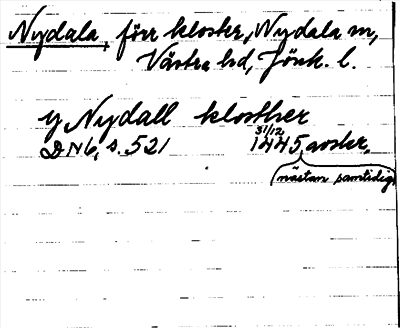 Nydala, förr kloster, Nydala sn,
Västra hd, Jönk. l.
y Nydall klosther
DN 6, s. 521 31/12 1445 avskr.
(nästan samtidig)